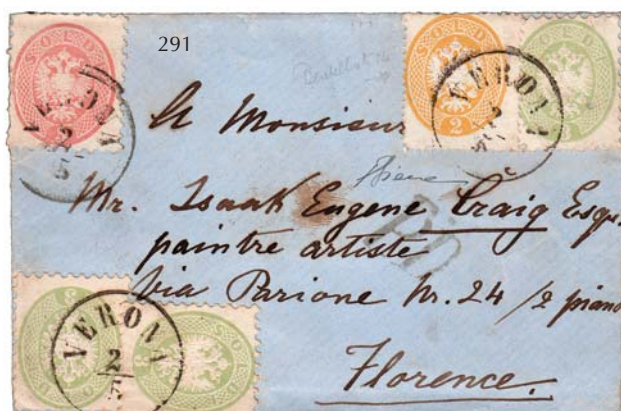 291
SOLDI
VERONA
2
SOLDI
2
VERONA
2
SOLDI
A Monsieur
Mr. Isaak Eugene Craig Esqu.
paintre artiste
via Parione Nr. 24 /2 piano
Florence.
PD
VERONA
2